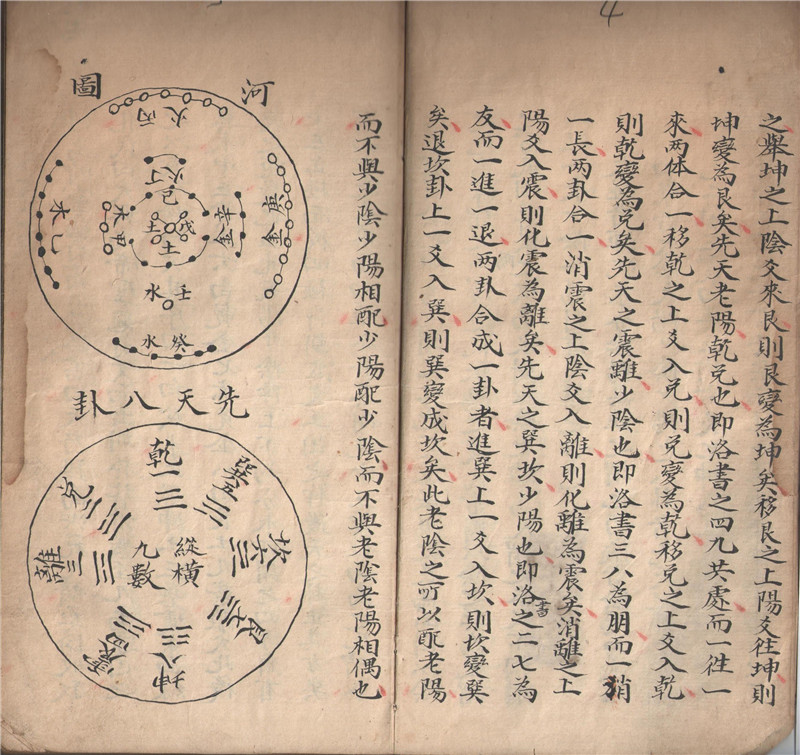 4
之舉坤之上陰爻來艮則艮變為坤矣移艮之上陽爻往坤則
坤變為艮矣先天老陽乾兌也即洛書之四九共處而一往一
來两体合一移乾之上爻入兌則兌變為乾移兌之上爻入乾
則乾變為兌矣先天之震離少陰也即洛書三八為朋而一消
一長两卦合一消震之上陰爻入離則化離為震矣消離之上
陽爻入震則化震為離矣先天之巽坎少陽也即洛書之二七為
友而一進一退两卦合成一卦者進巽上一爻入坎則坎變巽
矣退坎卦上一爻入巽則巽變成坎矣此老陰之所以配老陽
而不與少陰少陽相配少陽配少陰而不與老陰老陽相偶也
河圖
火丙
火丁
庚金
辛金
己
戊
土
土
木甲
木乙
壬水
癸水
先天八卦
乾一
兌二
離三
震四
巽五
坎六
艮七
坤八
縱橫
九數